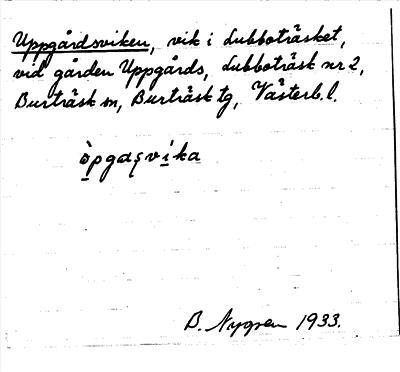 Uppgårdsviken, vik i Lubboträsket,
vid gården Uppgårds, Lubboträsk nr 2,
Burträsk sn, Burträsk tg, Västerb. l.
òpgaʂvika
B. Nygren 1933.